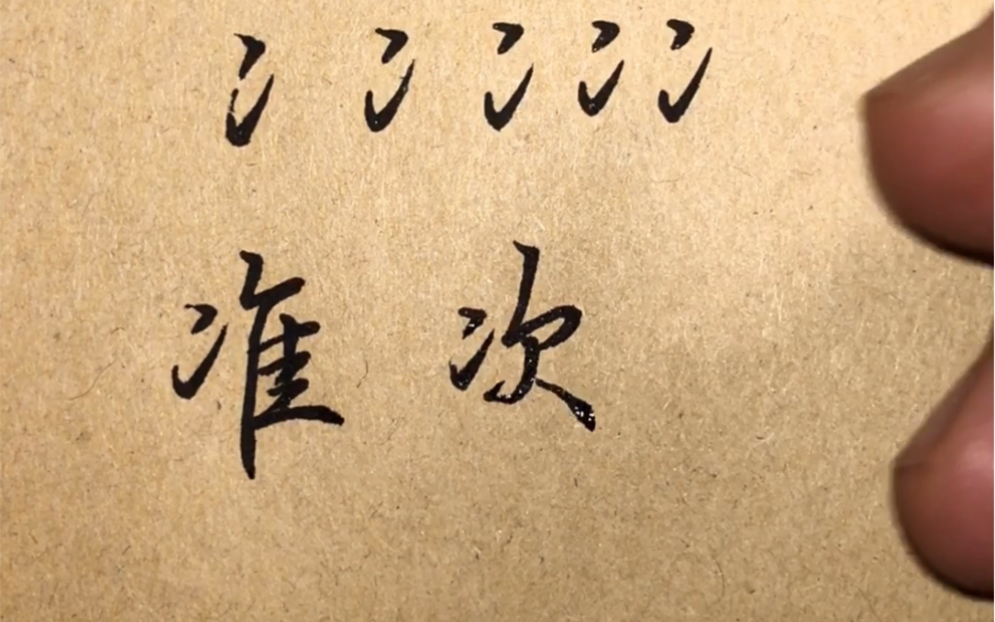 冫冫冫冫冫
准 次